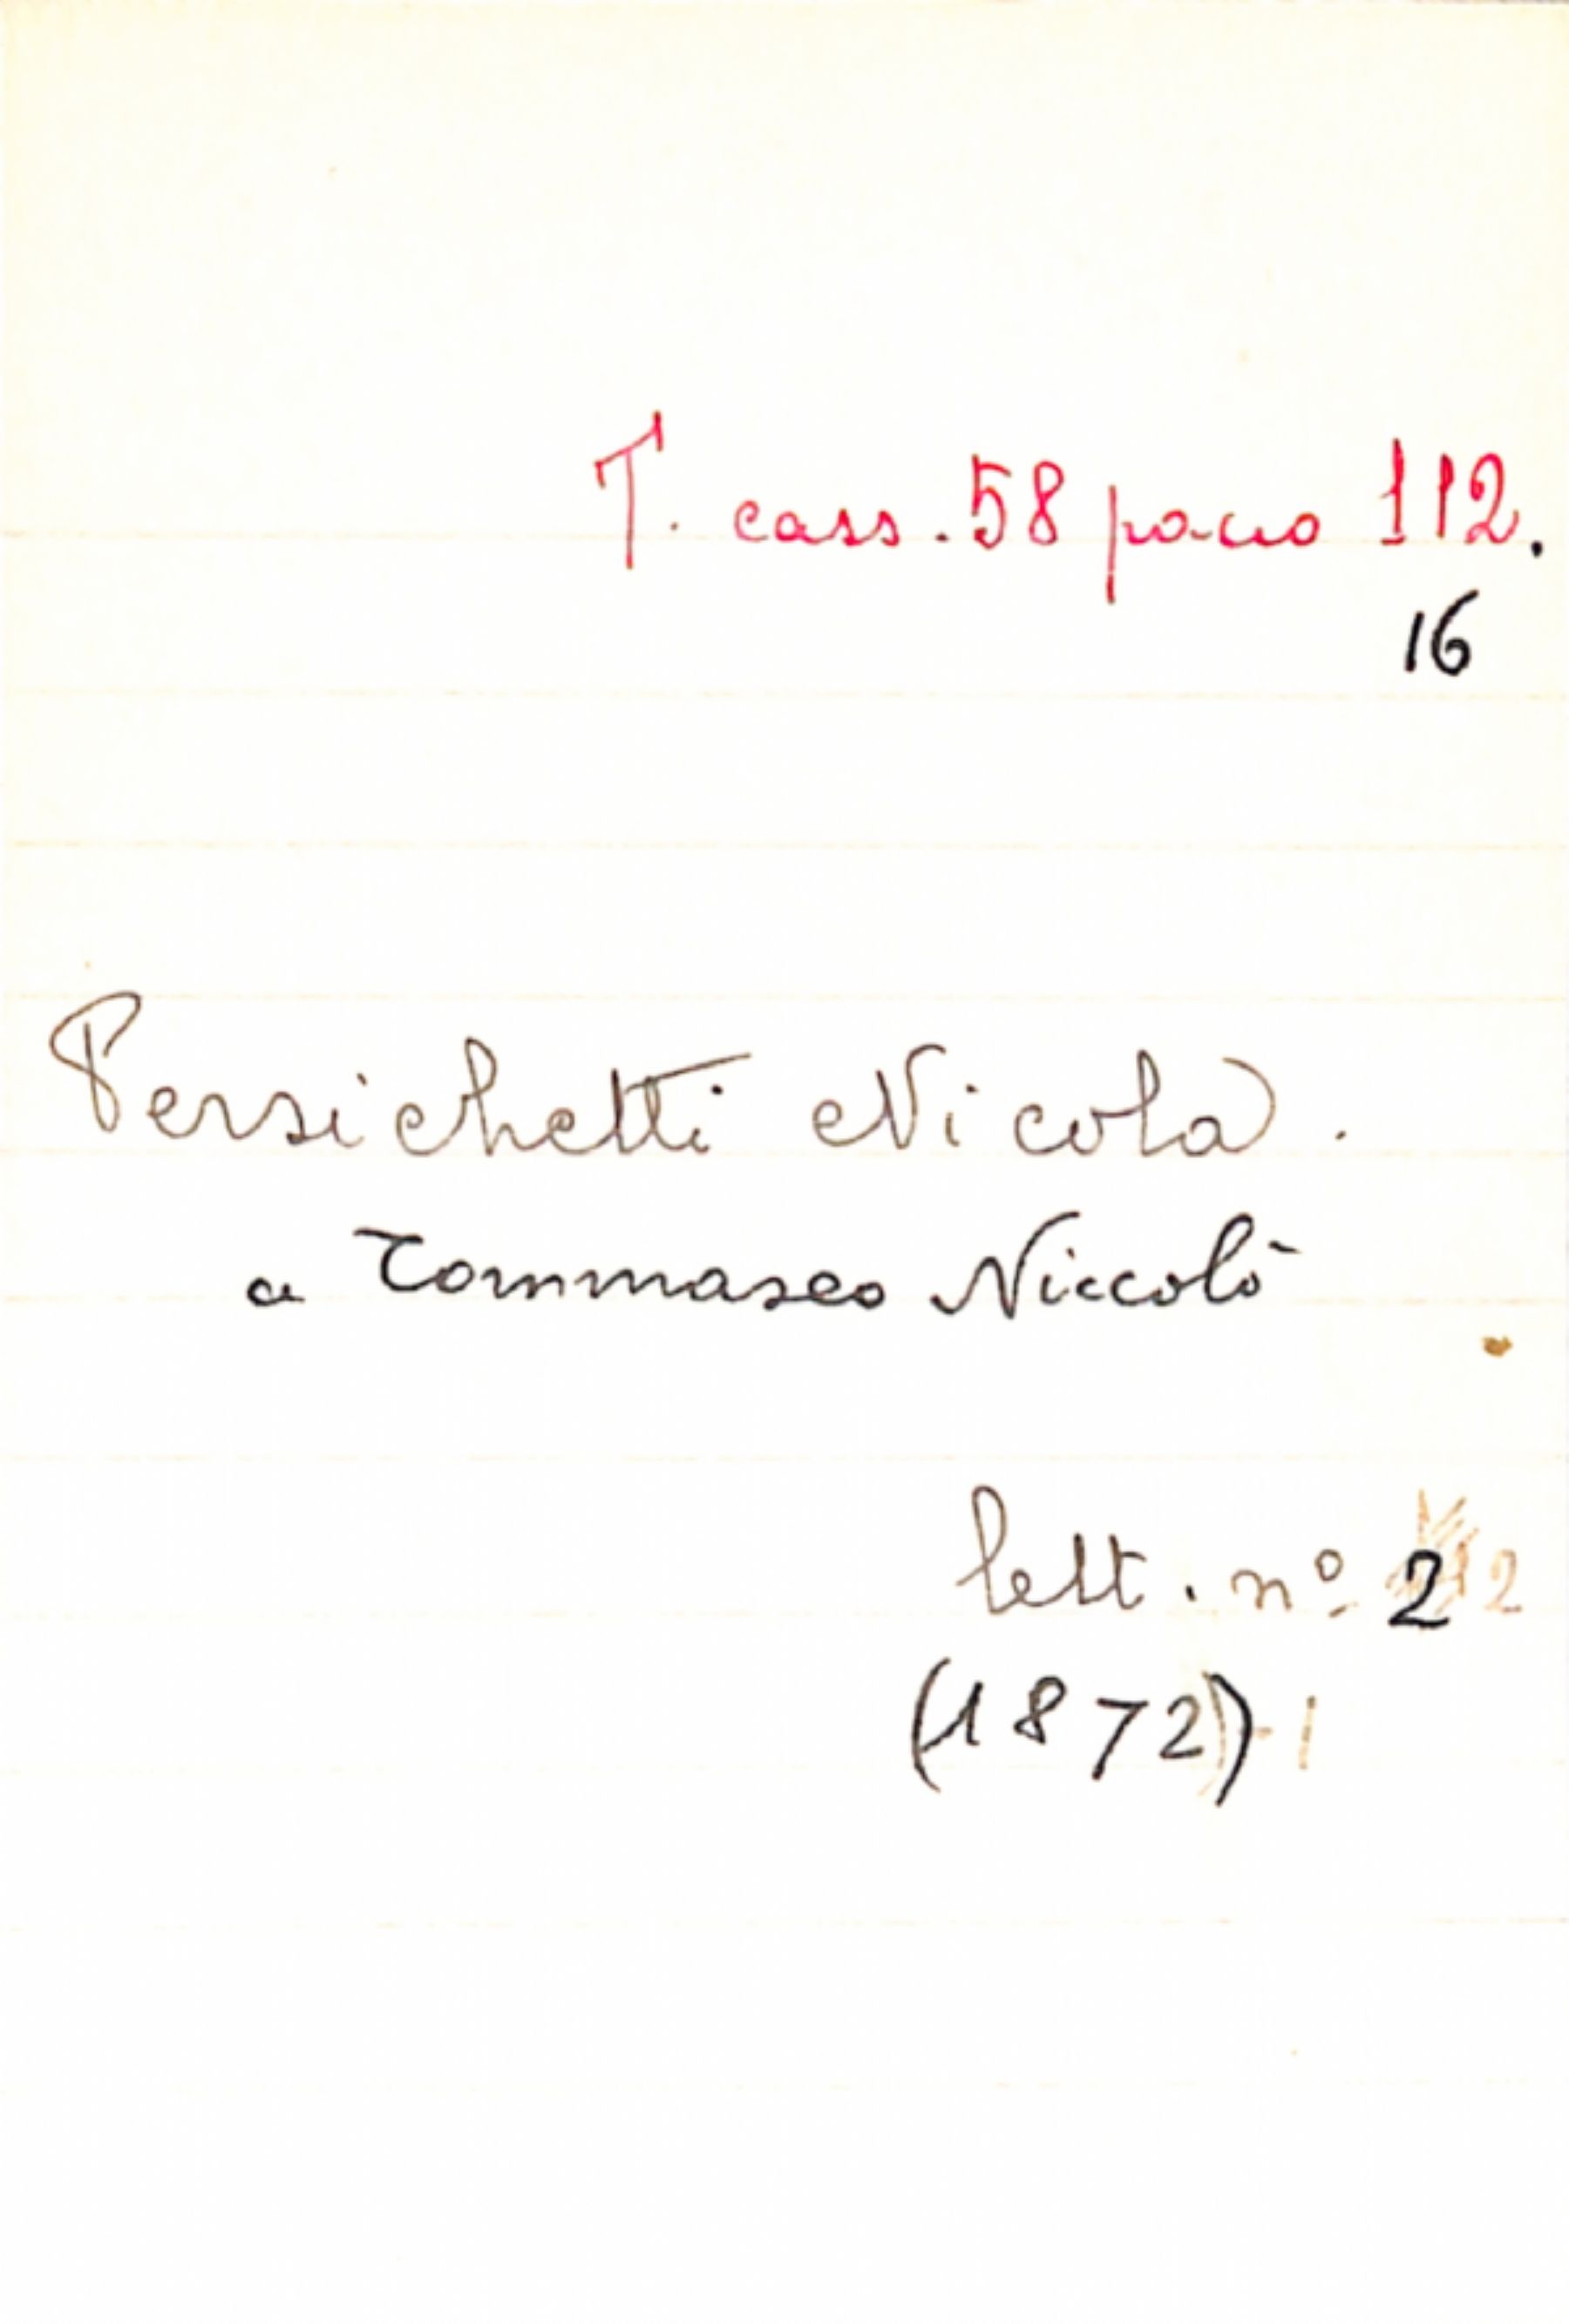 T. cass. 58 pacco 112.
16
Persichetti Nicola.
a Tommaseo Niccolò
lett. nº 2 2
(1872)